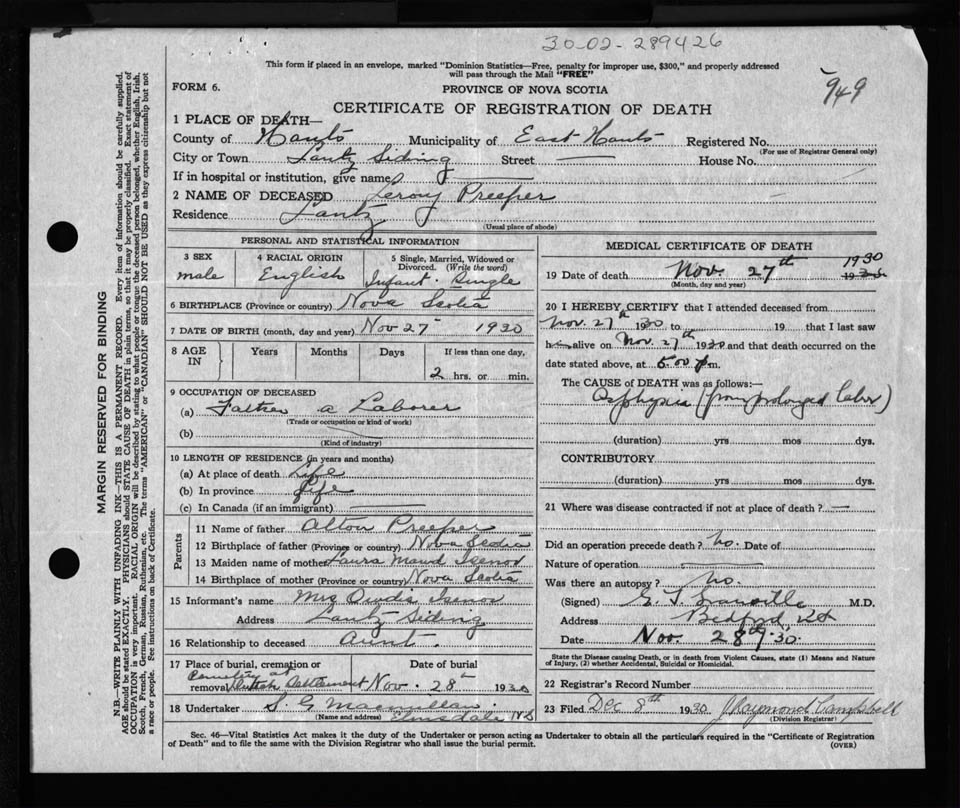 30-02-289426
This form if placed in an envelope, marked "Dominion Statistics—Free, penalty for improper use, $300," and properly addressed
will pass through the Mail "FREE"
FORM 6.
PROVINCE OF NOVA SCOTIA
949
CERTIFICATE OF REGISTRATION OF DEATH
1 PLACE OF DEATH—
County of Hants Municipality of East Hants Registered No.
(For use of Registrar General only)
City or Town Lantz Siding Street — House No.
If in hospital or institution, give name
2 NAME OF DECEASED Leroy Preeper
Residence Lantz
(Usual place of abode)
PERSONAL AND STATISTICAL INFORMATION
3 SEX
male
4 RACIAL ORIGIN
English
5 Single, Married, Widowed or
Divorced. (Write the word)
Infant. Single
6 BIRTHPLACE (Province or country) Nova Scotia
7 DATE OF BIRTH (month, day and year) Nov 27 1930
8 AGE IN
Years Months Days If less than one day,
2 hrs. or min.
9 OCCUPATION OF DECEASED
(a) Father a Laborer
(Trade or occupation or kind of work)
(b)
(Kind of industry)
10 LENGTH OF RESIDENCE (in years and months)
(a) At place of death Life
(b) In province Life
(c) In Canada (if an immigrant)
Parents
11 Name of father Alton Preeper
12 Birthplace of father (Province or country) Nova Scotia
13 Maiden name of mother Laura Maud Isenor
14 Birthplace of mother (Province or country) Nova Scotia
15 Informant's name Mrs Isenor
Address Lantz Siding
16 Relationship to deceased Aunt.
17 Place of burial, cremation or
removal Cemetery at Dutch Settlement
Date of burial
Nov. 28th 1930
18 Undertaker S. G. Macmillan
(Name and address) Elmsdale NS
MEDICAL CERTIFICATE OF DEATH
19 Date of death Nov. 27th 1930
(Month, day and year)
20 I HEREBY CERTIFY that I attended deceased from
Nov. 27th 1930 to 19 that I last saw
h alive on Nov. 27th 1930 and that death occurred on the
date stated above, at 5.00 p m.
The CAUSE OF DEATH was as follows:—
Asphyxia (from prolonged labor)
(duration) yrs mos dys.
CONTRIBUTORY
(duration) yrs mos dys.
21 Where was disease contracted if not at place of death? —
Did an operation precede death? No. Date of
Nature of operation
Was there an autopsy? No.
(Signed) M.D.
Address Bedford
Date Nov. 28th 30.
State the Disease causing Death, or in death from Violent Causes, state (1) Means and Nature
of Injury, (2) whether Accidental, Suicidal or Homicidal.
22 Registrar's Record Number
23 Filed Dec 8th 1930 J Raymond Campbell
(Division Registrar)
Sec. 46—Vital Statistics Act makes it the duty of the Undertaker or person acting as Undertaker to obtain all the particulars required in the "Certificate of Registration
of Death" and to file the same with the Division Registrar who shall issue the burial permit.
(OVER)
MARGIN RESERVED FOR BINDING
N.B.—WRITE PLAINLY WITH UNFADING INK—THIS IS A PERMANENT RECORD. Every item of information should be carefully supplied.
AGE should be stated EXACTLY. PHYSICIANS should STATE CAUSE OF DEATH in plain terms, so that it may be properly classified. Exact statement of
OCCUPATION is very important. RACIAL ORIGIN will be described by stating to what people or tongue the deceased person belonged, whether English, Irish,
Scotch, French, German, Russian, Ruthenian, etc. The terms "AMERICAN" or "CANADIAN" SHOULD NOT BE USED as they express citizenship but not
a race or people. See instructions on back of Certificate.